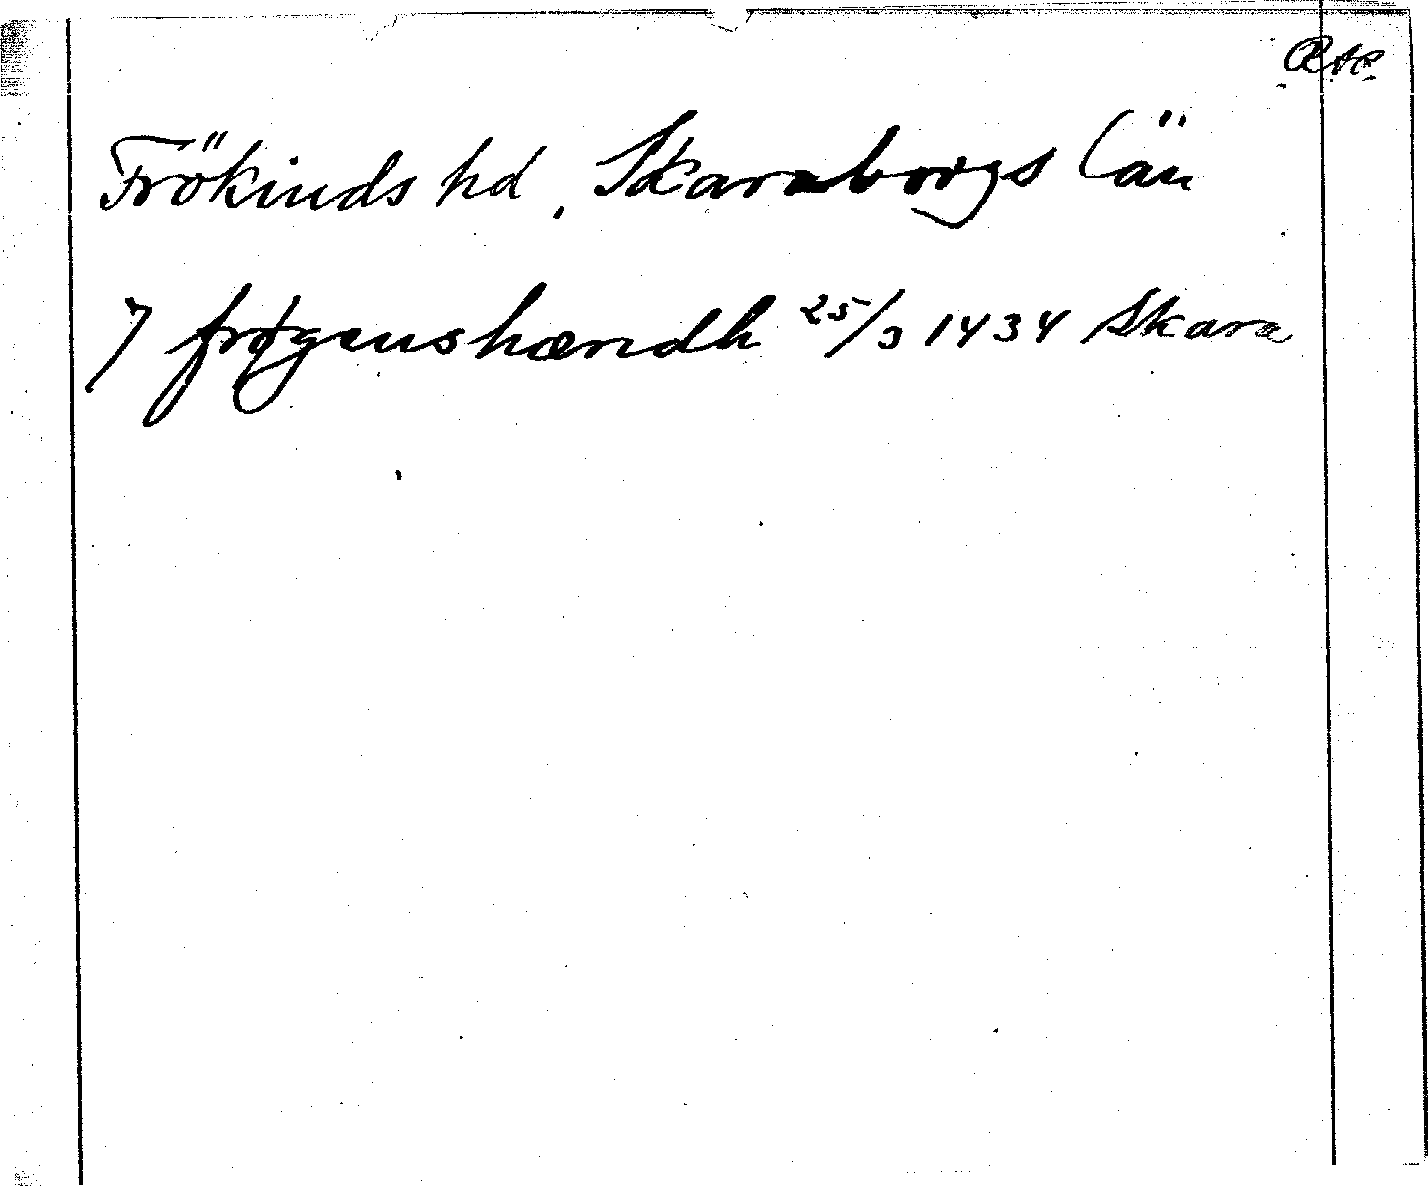 Frökinds hd, Skaraborgs län
J frøgenshærædh 25/3 1434 Skara